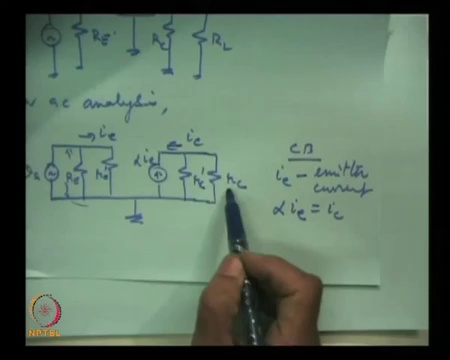 R_E' R_C R_L
ac analysis,
i_e α i_e i_c
R_E r_e r_c' r_c
CB
i_e - emitter
current
α i_e = i_c
NPTEL